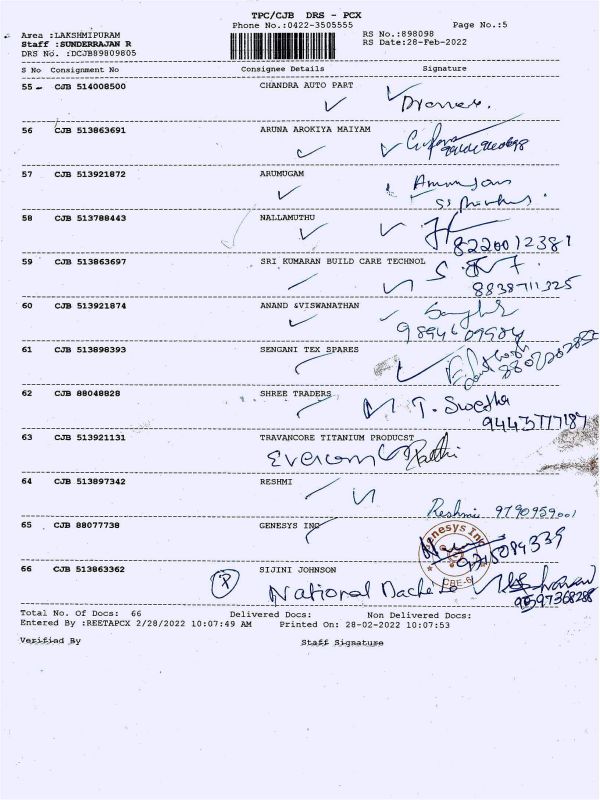 TPC/CJB DRS - PCX
Phone No.:0422-3505555 Page No.:5
Area :LAKSHMIPURAM RS No.:898098
Staff :SUNDERRAJAN R RS Date:28-Feb-2022
DRS No. :DCJB89809805
S No Consignment No Consignee Details Signature
55 CJB 514008500 CHANDRA AUTO PART
56 CJB 513863691 ARUNA AROKIYA MAIYAM
57 CJB 513921872 ARUMUGAM
58 CJB 513788443 NALLAMUTHU
8220012381
59 CJB 513863697 SRI KUMARAN BUILD CARE TECHNOL
8838711325
60 CJB 513921874 ANAND &VISWANATHAN
61 CJB 513898393 SENGANI TEX SPARES
62 CJB 88048828 SHREE TRADERS T. Swetha
9443777187
63 CJB 513921131 TRAVANCORE TITANIUM PRODUCST
64 CJB 513897342 RESHMI
Reshmi 9790959001
65 CJB 88077738 GENESYS INC
Genesys Inc
CBE-6
66 CJB 513863362 SIJINI JOHNSON
P National
9597368288
Total No. Of Docs: 66 Delivered Docs: Non Delivered Docs:
Entered By :REETAPCX 2/28/2022 10:07:49 AM Printed On: 28-02-2022 10:07:53
Verified By Staff Signature